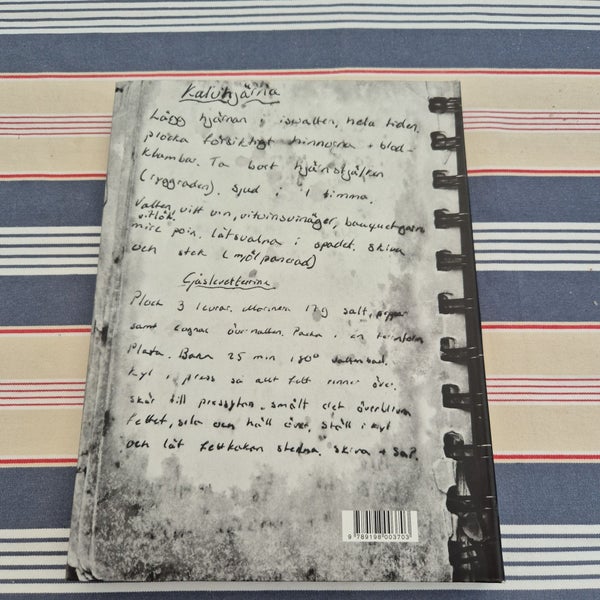 Kalvhjärna
Lägg hjärnan i isvatten, hela tiden.
plocka försiktigt hinnorna + blod-
klumpar. Ta bort hjärnstjälken
(ryggraden). Sjud i 1 timma.
Vatten, vitt vin, vitvinsvinäger, bouquetgarni
vitlök.
mire poix. låt svalna i spadet. skiva
och stek (mjölpanerad)
Gåsleverterrine
Plocka 3 levrar. Marinera 17g salt, peppar
samt cognac över natten. Packa i en
Plasta. Baka 25 min 180° vattenbad.
kyl i press så att fett rinner över.
skär till pressytan. smält det
fettet, sila och häll över. ställ i kyl
och låt fettkakan stelna. skiva +
9 789198 003703